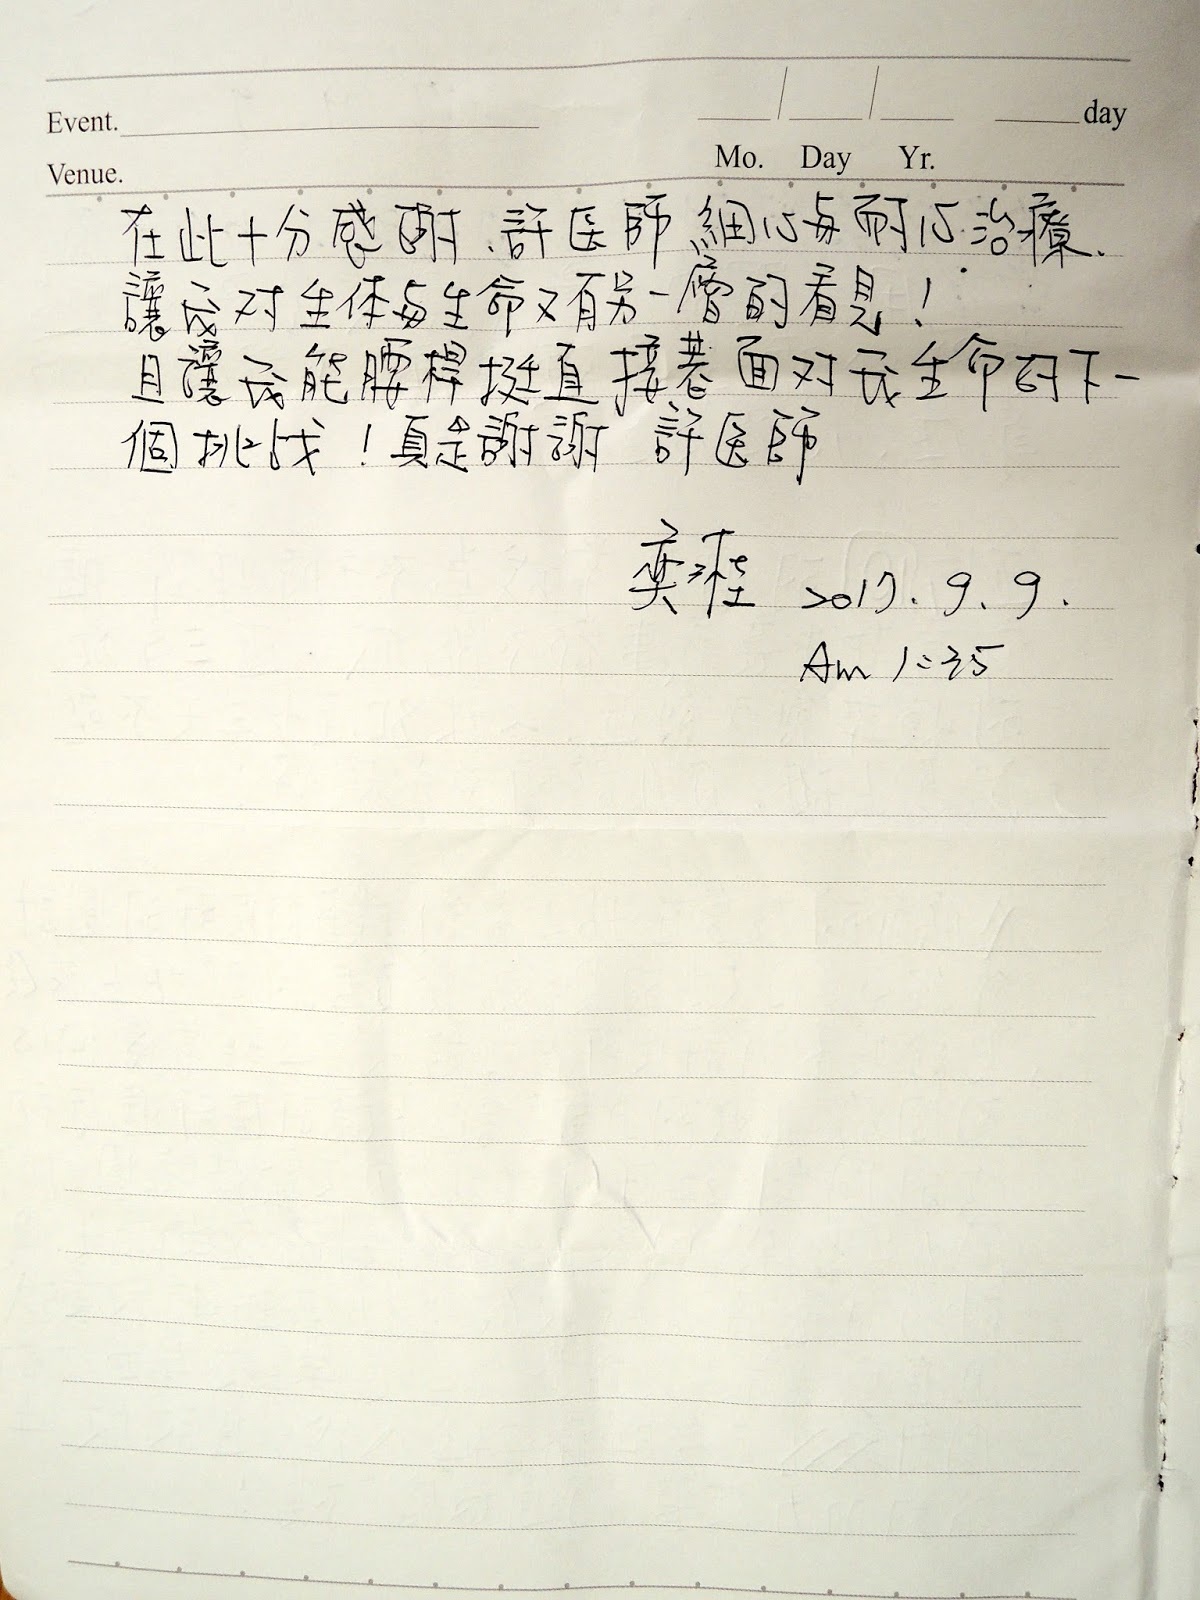 Event.
day
Mo. Day Yr.
Venue.
在此十分感謝、許医師 細心与耐心治療、
讓我对生体与生命又有另一層的看見！
且讓我能腰桿挺直 接著面对我生命的下一
個挑战！真是謝謝 許医師
奕 2017.9.9.
Am 1:35